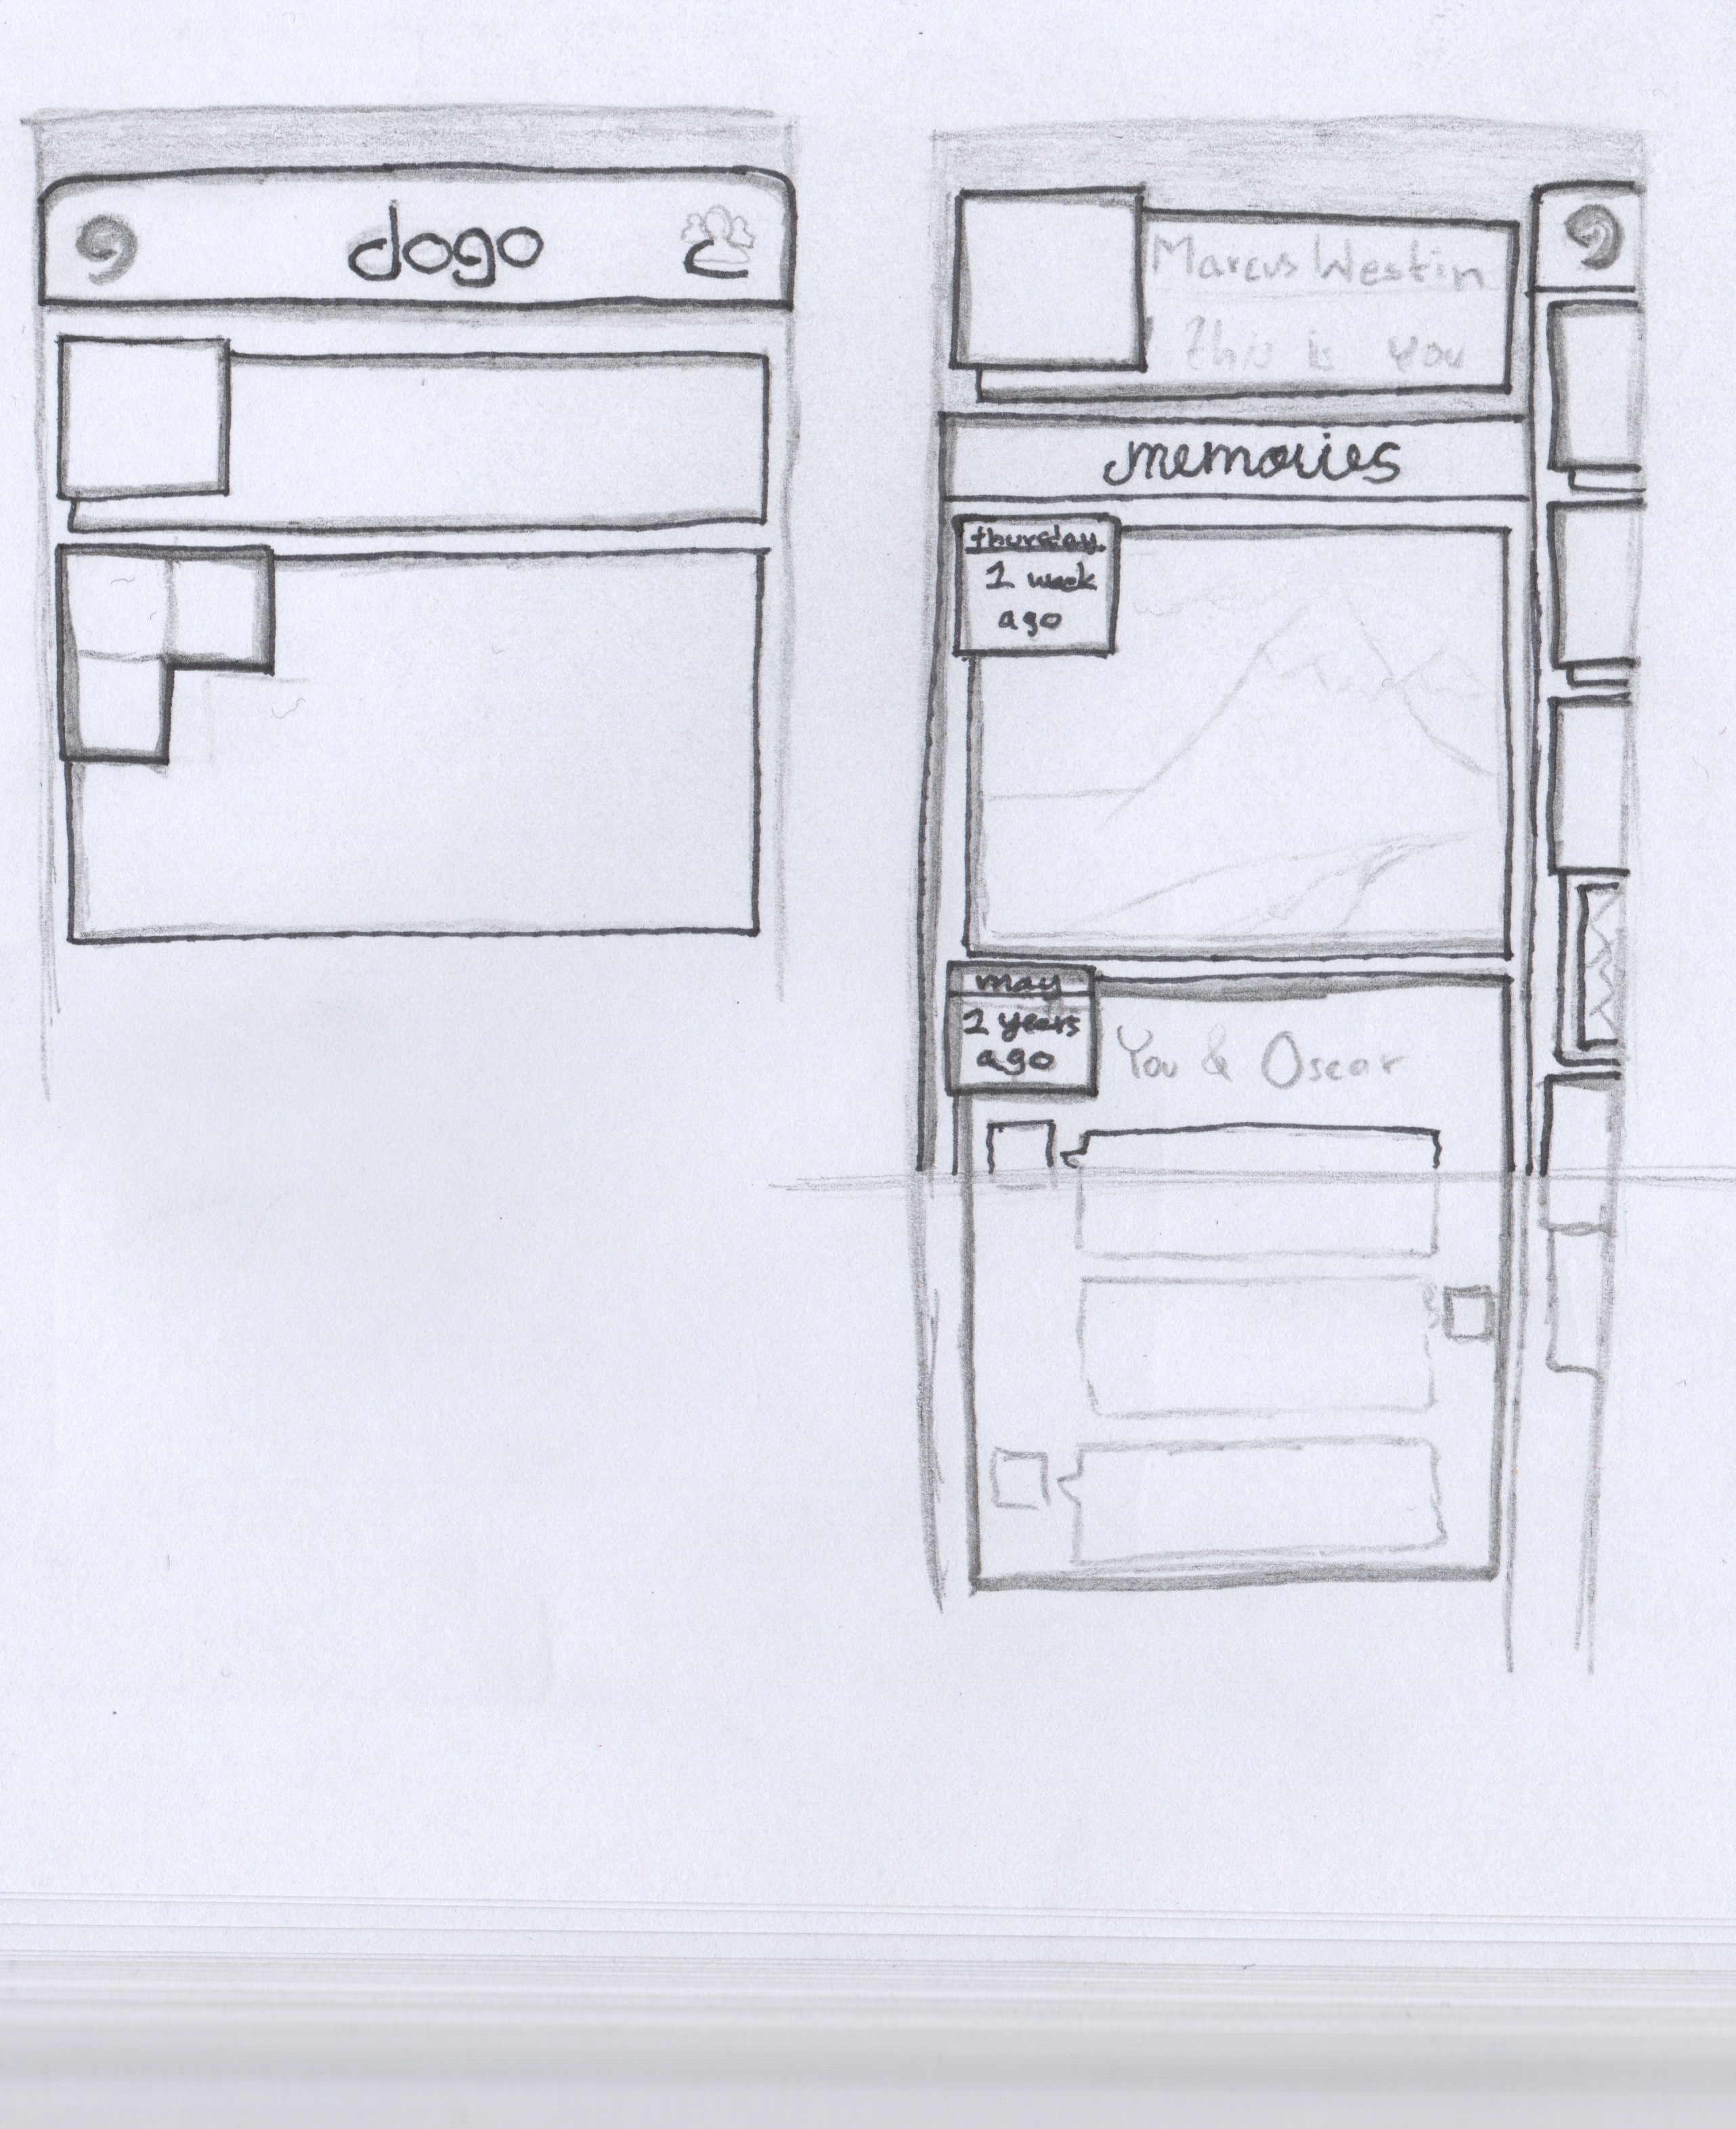 dogo
Marcus Westin
this is you
memories
thursday
1 week
ago
may
2 years
ago
You & Oscar